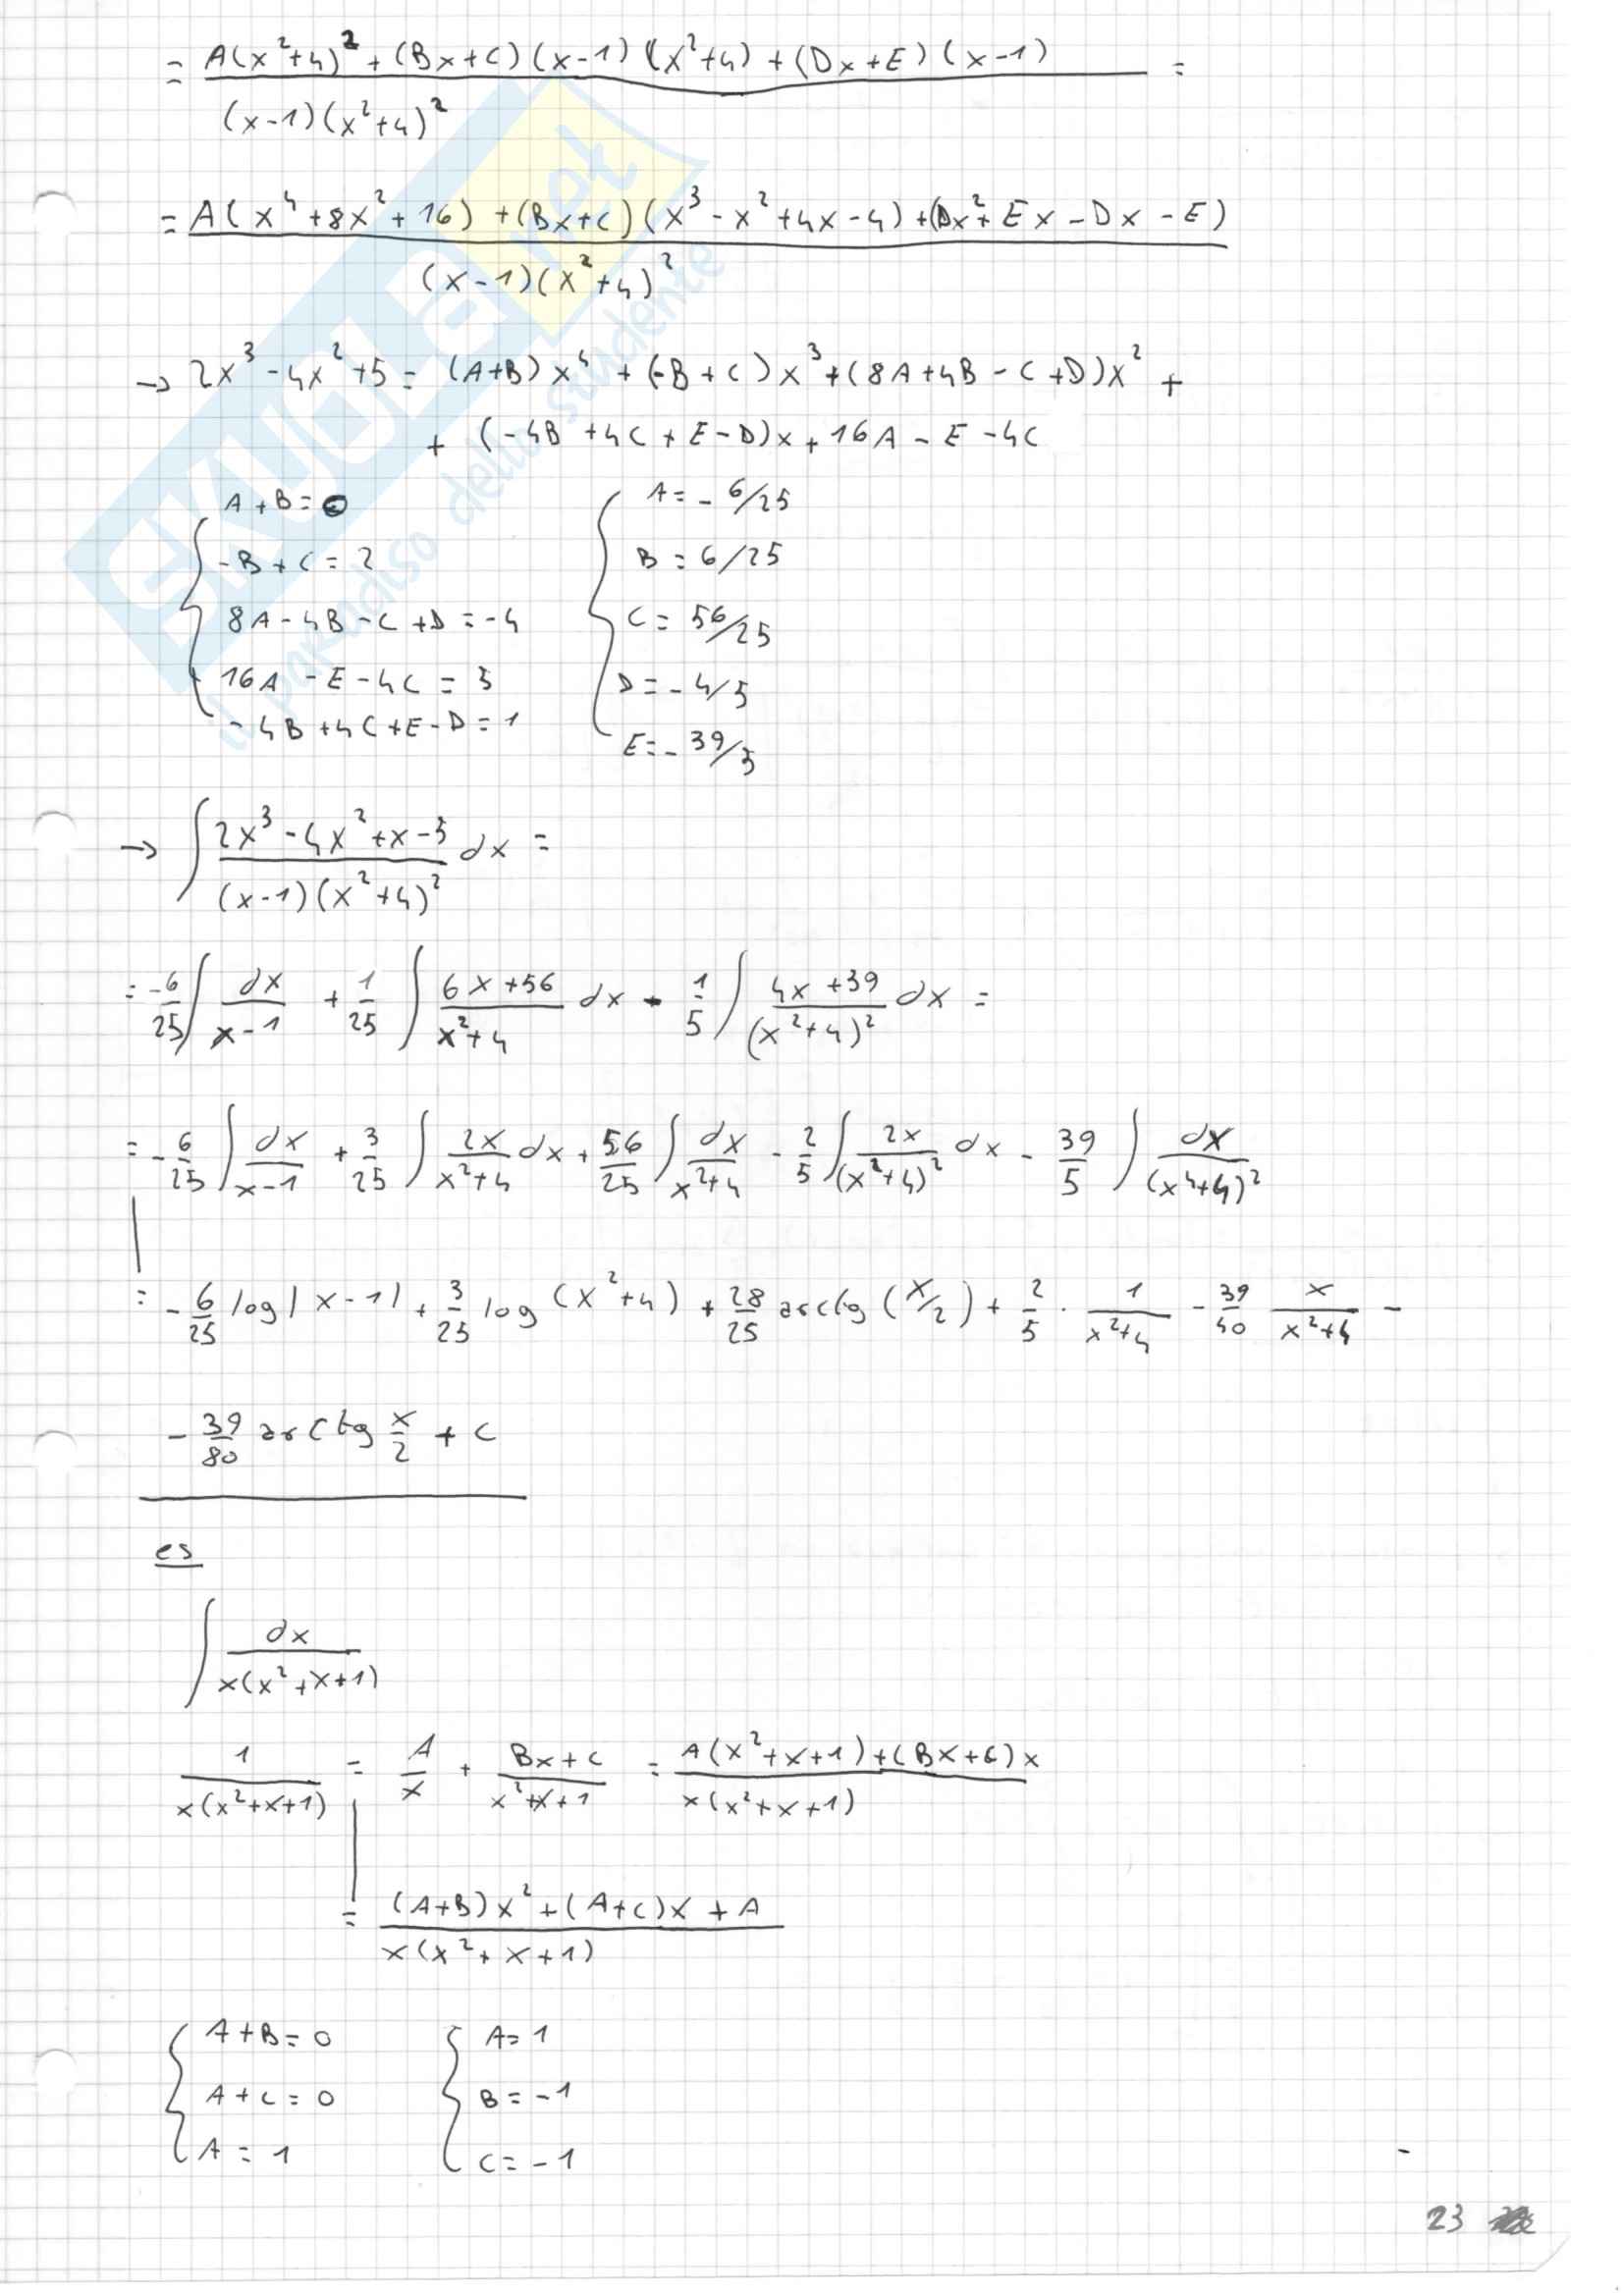 = A(x²+4)² + (Bx+C)(x-1)(x²+4) + (Dx+E)(x-1) =
(x-1)(x²+4)²
= A(x⁴+8x²+16) + (Bx+C)(x³-x²+4x-4) + (Dx²+Ex-Dx-E)
(x-1)(x²+4)²
→ 2x³-4x²+5 = (A+B)x⁴ + (-B+C)x³ + (8A+4B-C+D)x² +
+ (-4B+4C+E-D)x + 16A-E-4C
A+B=0 A=-6/25
-B+C=2 B=6/25
8A-4B-C+D=-4 C=56/25
16A-E-4C=5 D=-4/5
-4B+4C+E-D=1 E=-39/5
→ ∫ (2x³-4x²+x-5)/((x-1)(x²+4)²) dx =
= -6/25 ∫ dx/(x-1) + 1/25 ∫ (6x+56)/(x²+4) dx - 1/5 ∫ (4x+39)/(x²+4)² dx =
= -6/25 ∫ dx/(x-1) + 3/25 ∫ 2x/(x²+4) dx + 56/25 ∫ dx/(x²+4) - 2/5 ∫ 2x/(x²+4)² dx - 39/5 ∫ dx/(x⁴+4)²
= -6/25 log|x-1| + 3/25 log(x²+4) + 28/25 arctg(x/2) + 2/5 · 1/(x²+4) - 39/40 x/(x²+4) -
- 39/80 arctg x/2 + c
es
∫ dx/(x(x²+x+1))
1/(x(x²+x+1)) = A/x + (Bx+C)/(x²+x+1) = (A(x²+x+1)+(Bx+C)x)/(x(x²+x+1))
= ((A+B)x²+(A+C)x+A)/(x(x²+x+1))
A+B=0 A=1
A+C=0 B=-1
A=1 C=-1
23
SKUOLA.net
il paradiso dello studente